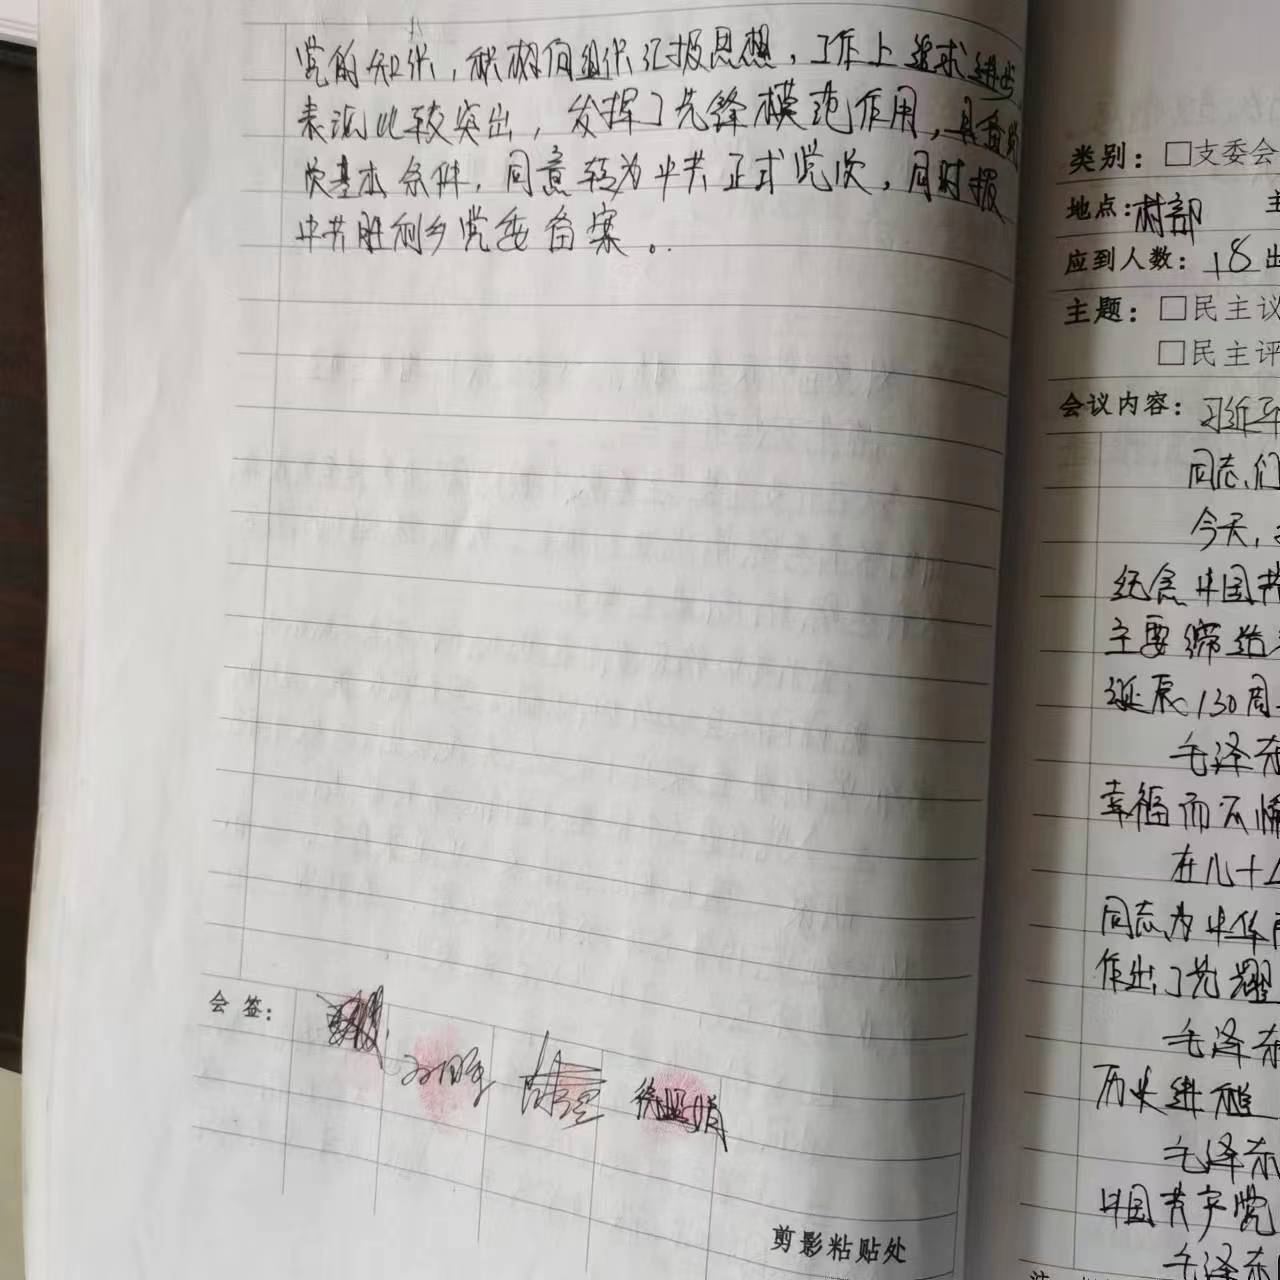 党的知识，积极向组织汇报思想，工作上追求进步
表现比较突出，发挥了先锋模范作用，具备党
员基本条件，同意转为中共正式党员，同时报
中共胜利乡党委备案。
会签：
剪影粘贴处
类别：□支委会
地点：村部 主
应到人数：18 出
主题：□民主议
□民主评
会议内容：习近平
同志们
今天，
纪念中国共
主要缔造
诞辰130周
毛泽东
幸福而不懈
在几十
同志为中华
作出了光耀
毛泽东
历史进程
毛泽东
中国共产党
毛泽东